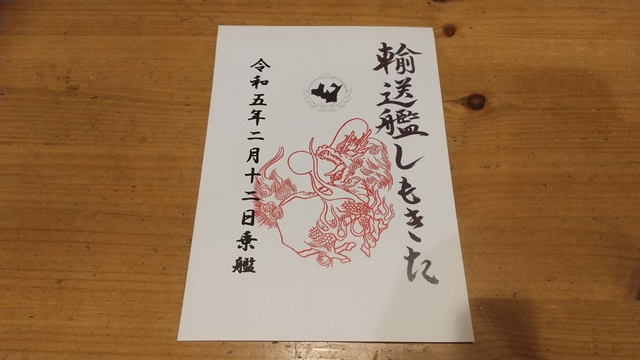 輸送艦しもきた
令和五年二月十二日乗艦